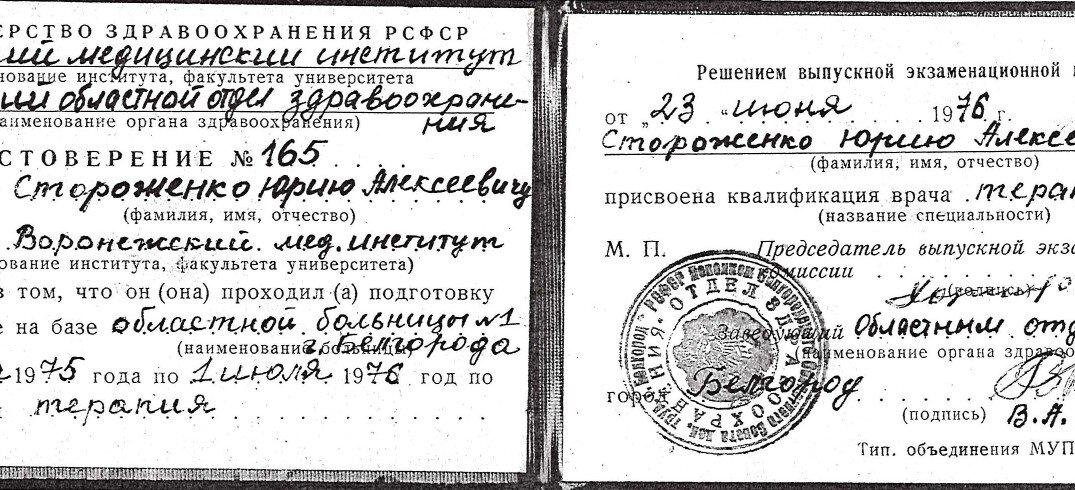 ЕРСТВО ЗДРАВООХРАНЕНИЯ РСФСР
ий медицинский институт
нование института, факультета университета
ий областной отдел здравоохране-
аименование органа здравоохранения) ния
СТОВЕРЕНИЕ № 165
Стороженко Юрию Алексеевичу
(фамилия, имя, отчество)
Воронежский мед. институт
ование института, факультета университета)
в том, что он (она) проходил (а) подготовку
е на базе областной больницы №1
(наименование больницы) г. Белгорода
1975 года по 1 июля 1976 год по
терапия
Решением выпускной экзаменационной
от „23 “ июня 1976 г.
Стороженко Юрию Алексе
(фамилия, имя, отчество)
присвоена квалификация врача терап
(название специальности)
М. П. Председатель выпускной экза
комиссии
(подпись)
Заведующий Областным отд
(наименование органа здравоо
город Белгород
(подпись) В.А.
Тип. объединения МУП
ОТДЕЛ ЗДРАВООХРАНЕНИЯ